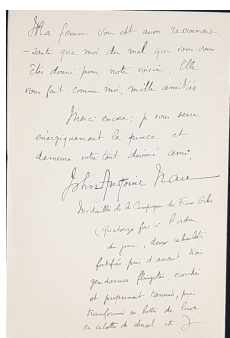 Ma femme vous est aussi reconnais-
-sante que moi du mal que vous vous
êtes donné pour notre voisin. Elle
vous fait comme moi, mille amitiés.
Merci encore; je vous serre
énergiquement la pince et
demeure votre tout dévoué ami,
John Antoine Nau
Médaillé de la Campagne de
(Quatorze fois à l'ordre
du jour, deux
fortifiés pris d'assaut, trois
gendarmes
et proprement tannés, puis
transformés en bottes de luxe,
en culotte de cheval etc.)